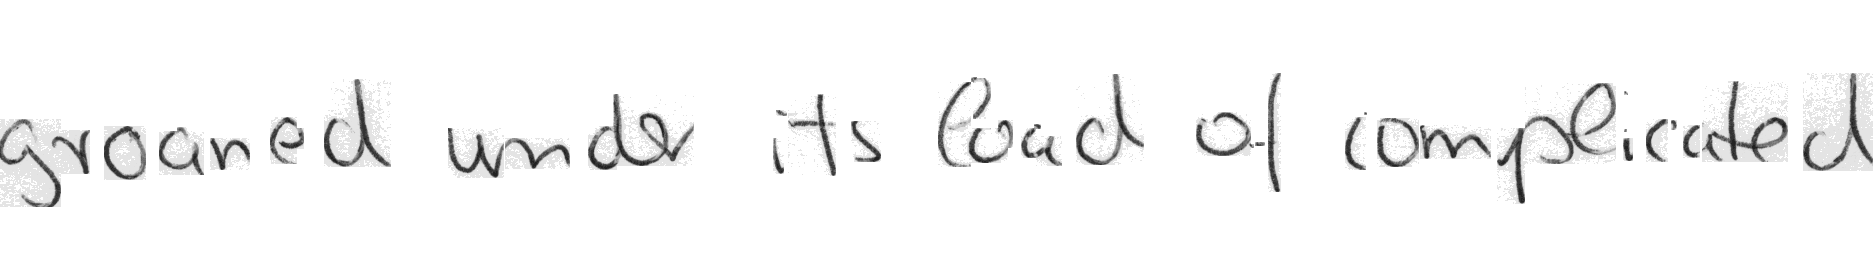 groaned under its load of complicated